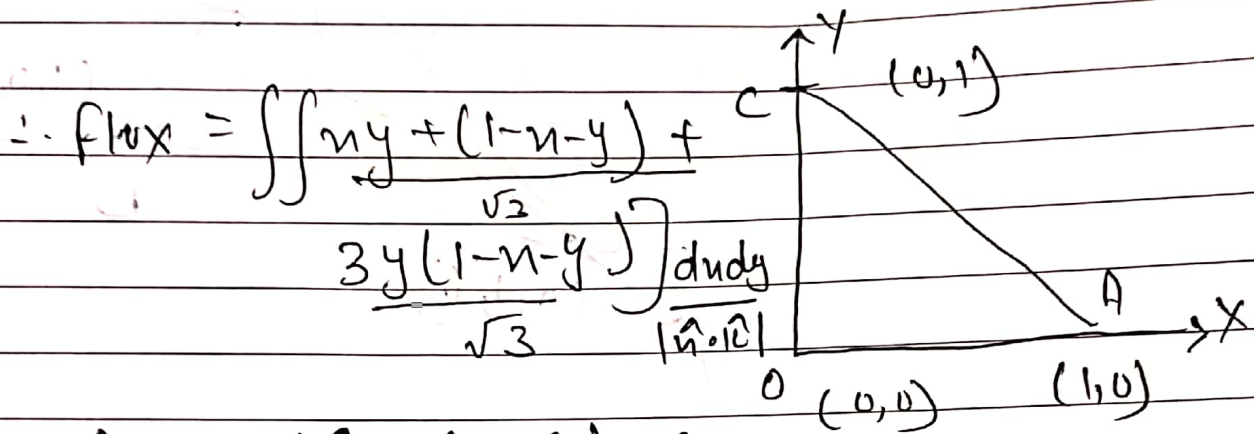 ∴ flux = ∫∫ [xy + (1-x-y) +
√3
3y(1-x-y)] dxdy
√3 |n̂·k̂|
Y
C (0,1)
A
X
O (0,0) (1,0)